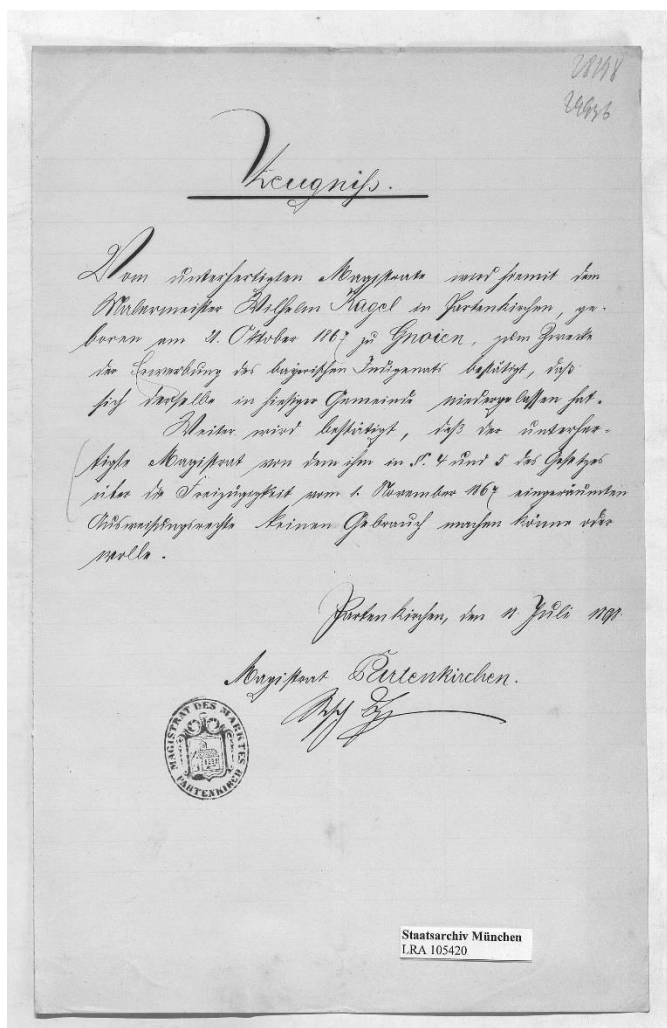 28198
29936
Zeugniß.
Vom unterfertigten Magistrate wird hiemit dem
Malermeister Wilhelm Kagel in Partenkirchen, ge-
boren am 21. Oktober 1867 zu Gnoien, zum Zwecke
der Erwerbung des bayerischen Indigenats bestätigt, daß
sich derselbe in hiesiger Gemeinde niedergelassen hat.
Weiter wird bestätigt, daß der unterfer-
tigte Magistrat von dem ihm in §. 4 und 5 des Gesetzes
über die Freizügigkeit vom 1. November 1867 eingeräumten
Ausweisungsrechte keinen Gebrauch machen könne oder
wolle.
Partenkirchen, den 11. Juli
Magistrat Partenkirchen.
MAGISTRAT DES MARKTES
PARTENKIRCH
Staatsarchiv München
LRA 105420